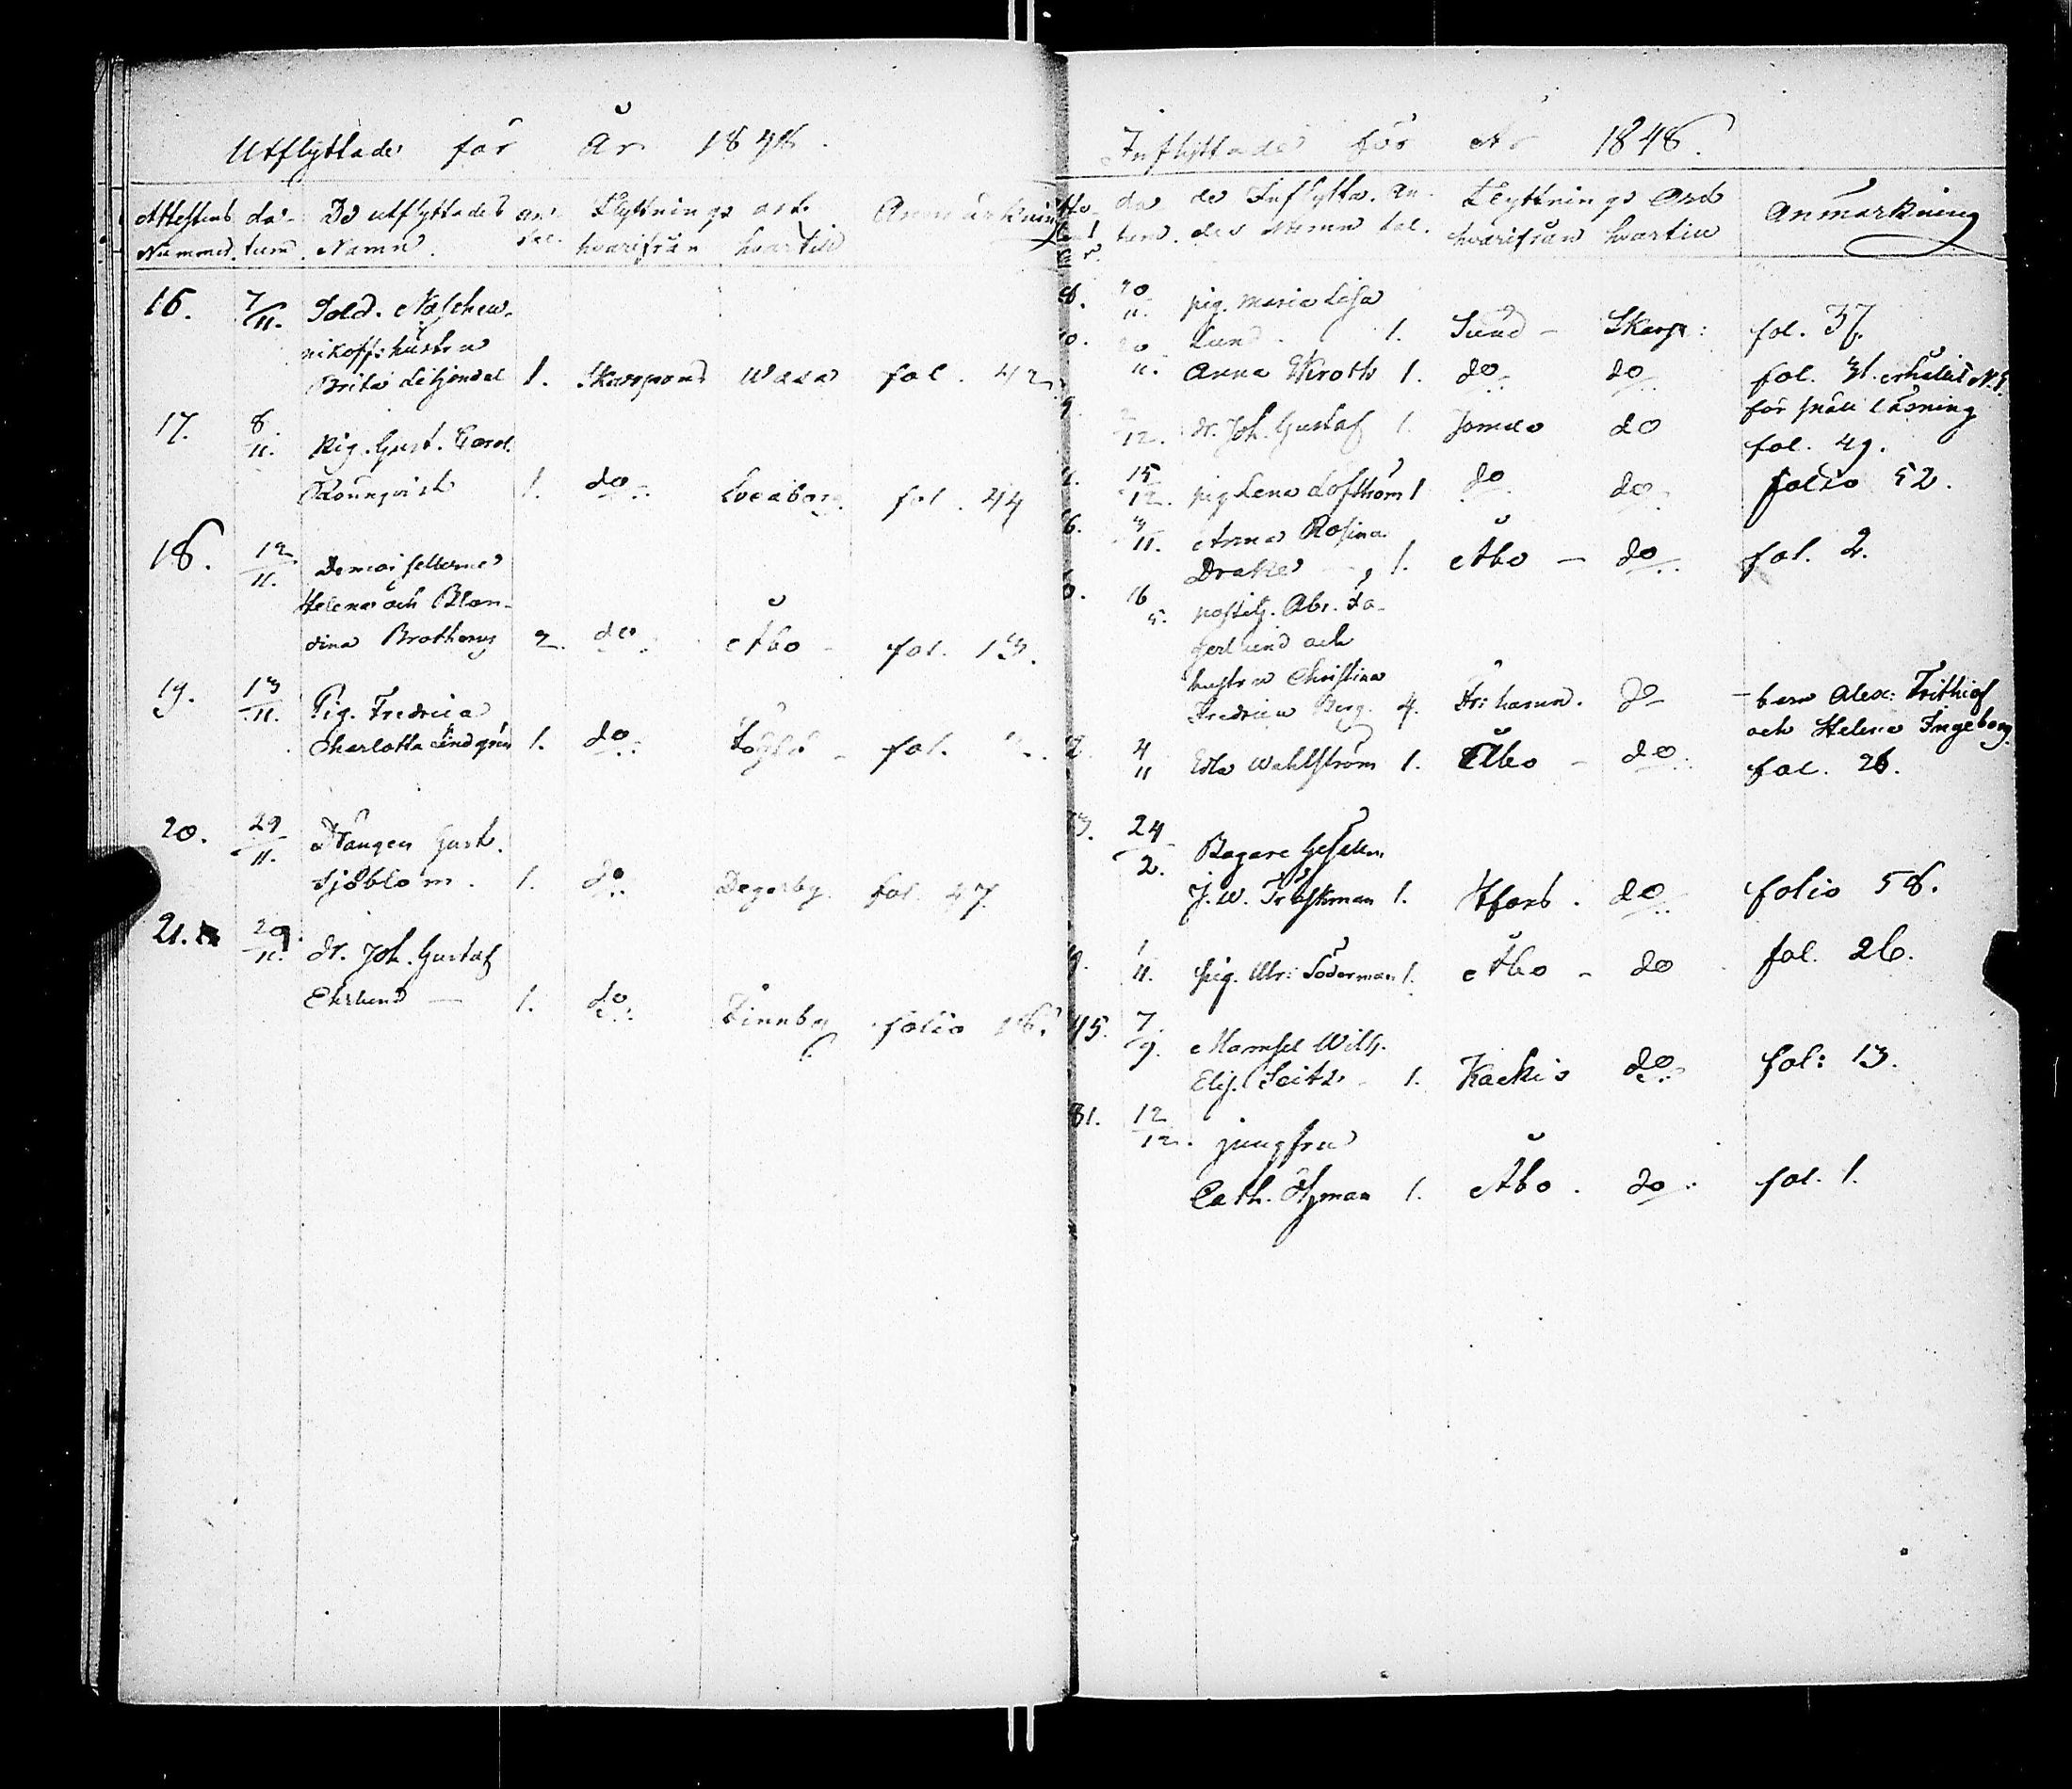 Utflyttade för År 1848.
Attestens da- De utflyttades an- Flyttnings ort. Anmärkning
Nummer. tum. Namn. tal. hvarifrån hvartill
16. 7/11. Sold. Naschew-
nikoffs hustru
Brita Liljendal 1. Skarpans Wasa fol. 42
17. 8/11. Pig. Gust. Carol.
Rönnqvist 1. do Lovaborg fol. 44
18. 12/11. Demoisellerna
Helena och Blan-
dina Brotherus 2. do Åbo - fol. 13.
19. 13/11. Pig. Fredrica
Charlotta Lindgren 1. do Föglö - fol.
20. 29/11. Drängen Gust.
Sjöblom. 1. do Degerby. fol. 47.
21. 29/11. dr. Joh. Gustaf
Ekelund - 1. do Finnby folio 18.
Inflyttade för År 1848.
da- de Inflytta- An- Flyttnings Ord Anmärkning
tum. des Namn tal. hvarifrån hvartill
8. 20/11. pig. Maria Lisa
Lund. 1. Sund - Skarp: fol. 37.
10. 20/11. Anna Wiroth 1. do do fol. 31. erhållit N. 5
för snäll läsning
9. 2/12. dr. Joh. Gustaf 1. Jomala do fol. 49.
15/12. pig Lena Löfström 1 do do folio 52.
6. 3/11. Anna Rosina
Draker 1. Åbo - do fol. 2.
16/5. postilj. Abr. Fa-
gerlund och
hustru Christina
Fredrica Berg. 4. Fr: hamn. do - barn Alex: Frithiof
och Helena Ingeborg.
4/11 Edla Wahlström 1. Åbo - do fol. 26.
13. 24/2. Bagare Gesällen
J. W. Träskman 1. Hfors. do folio 58.
9. 1/11. pig. Ulr: Söderman 1. Åbo - do fol. 26.
45. 7/9. Mamsel Wilh.
Elis. Seitz - 1. Kackis do fol: 13.
81. 12/12. jungfru
Cath. Öhman 1. Åbo. do fol. 1.